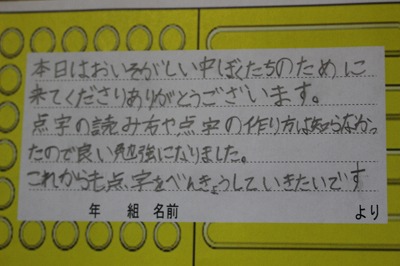 本日はおいそがしい中ぼくたちのために
来てくださりありがとうございます。
点字の読み方や点字の作り方は知らなかっ
たので良い勉強になりました。
これからも点字をべんきょうしていきたいです
年 組 名前 より